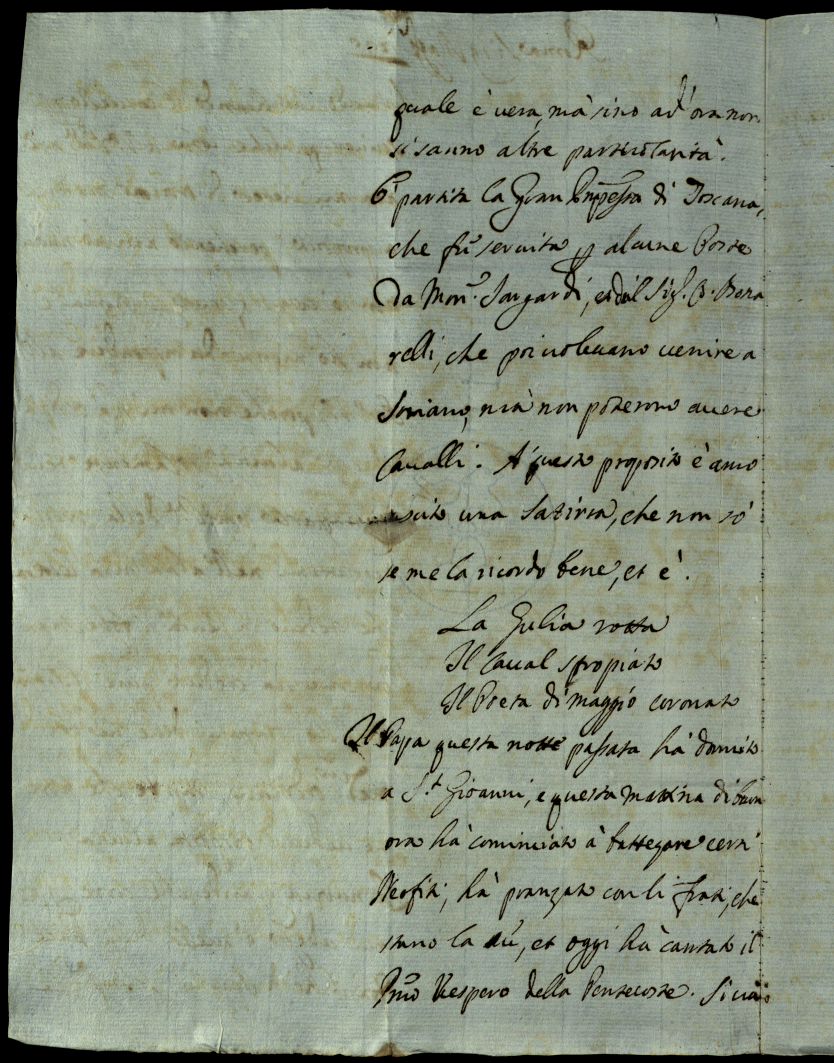 quale è vera, mà sino ad'ora non
si sanno altre particolarità.
È partita la Gran Prnpēssa di Toscana,
che fù servita ꝑ alcune Poste
da Mon.r Sergardi, e dal Sig.r B. Bona
relli, che poi volevano venire a
Soriano, mà non poterono avere
Cavalli. A' questo proposito è anco
uscito una Satirra, che non sò
se me la ricordo bene, et è.
La Giulia rotta
Il Caval stropiato
Il Poeta di maggio coronato
Il Papa questa notte passata hà dormito
a S.t Gioanni, e questa mattina di buon
ora hà cominciato à battezare certi
Neofiti, hà pranzato con li frati, che
stano la sù, et oggi hà cantato il
Pmo Vespero della Pentecoste. Si và